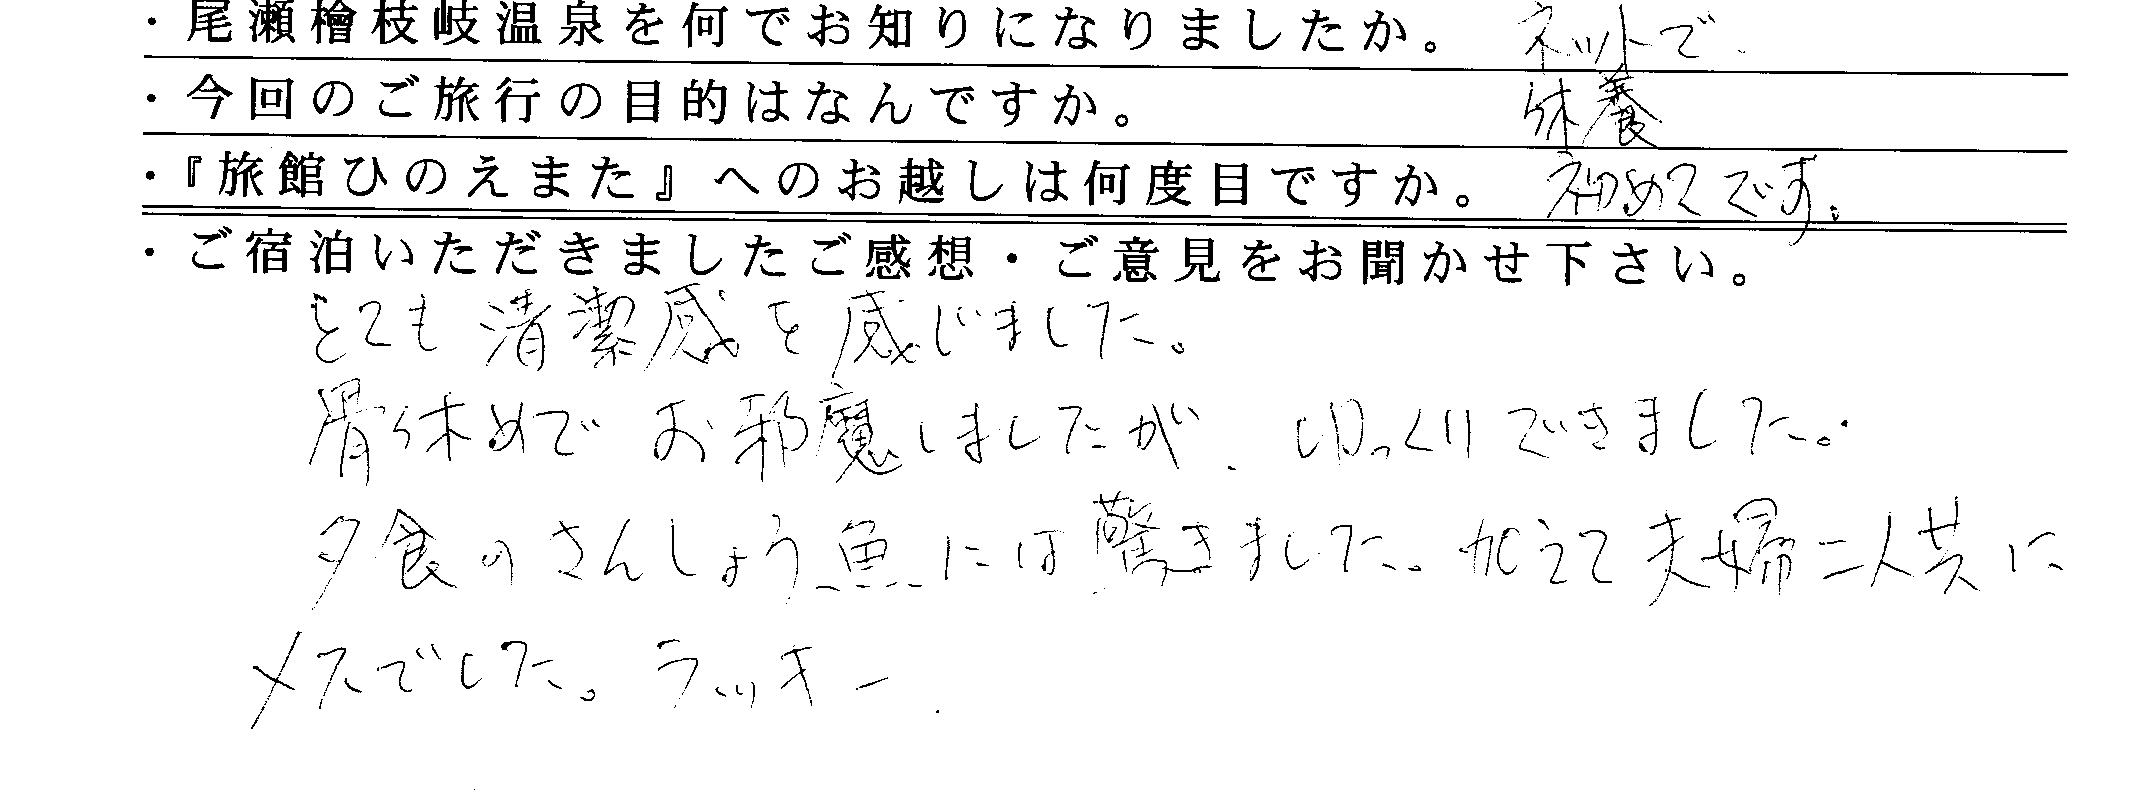 ・尾瀬檜枝岐温泉を何でお知りになりましたか。 ネットで.
・今回のご旅行の目的はなんですか。 休養
・『旅館ひのえまた』へのお越しは何度目ですか。 初めてです。
・ご宿泊いただきましたご感想・ご意見をお聞かせ下さい。
とても清潔感を感じました。
骨休めでお邪魔しましたが、ゆっくりできました。
夕食のさんしょう魚には驚きました。加えて夫婦二人共に
メスでした。ラッキー.